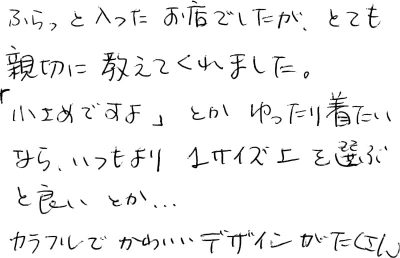 ふらっと入ったお店でしたが、とても
親切に教えてくれました。
「小さめですよ」とかゆったり着たい
なら、いつもより1サイズ上を選ぶ
と良いとか...
カラフルでかわいいデザインがたくさん